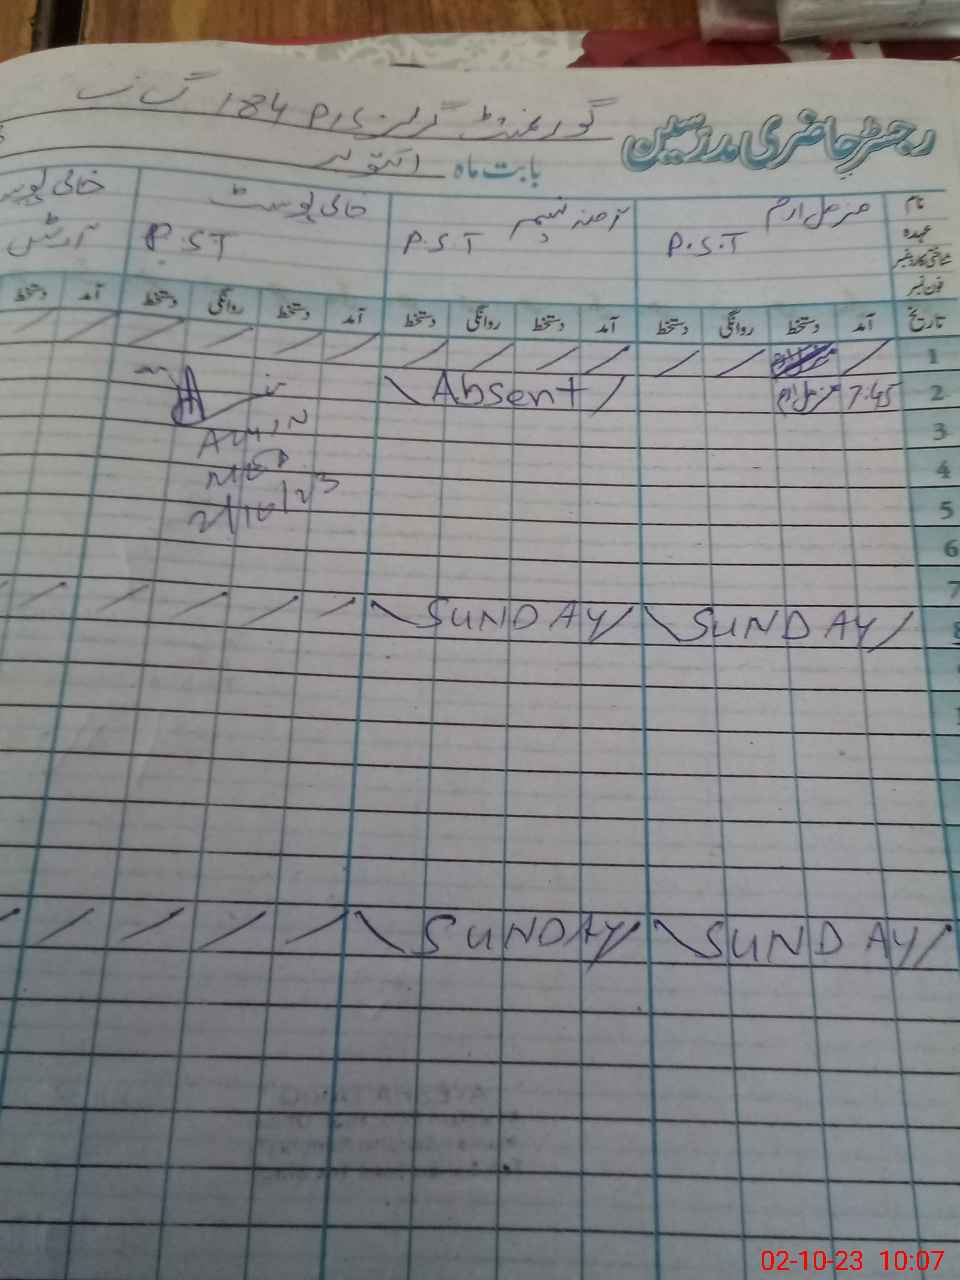 رجسٹر حاضری مدرسین
گورنمنٹ گرلز P/S 184 گ ب
بابت ماہ اکتوبر
نام مزمل ارم آمنہ نسیم خالی پوسٹ خالی
عہدہ P.S.T P.S.T P.S.T
شناختی کارڈ نمبر
فون نمبر
تاریخ آمد دستخط روانگی دستخط آمد دستخط روانگی دستخط آمد دستخط روانگی دستخط آمد دستخط
1
2 7:45 مزمل ارم Absent
3
4
5 2/10/23
6
7
8 SUNDAY SUNDAY
SUNDAY SUNDAY
02-10-23 10:07